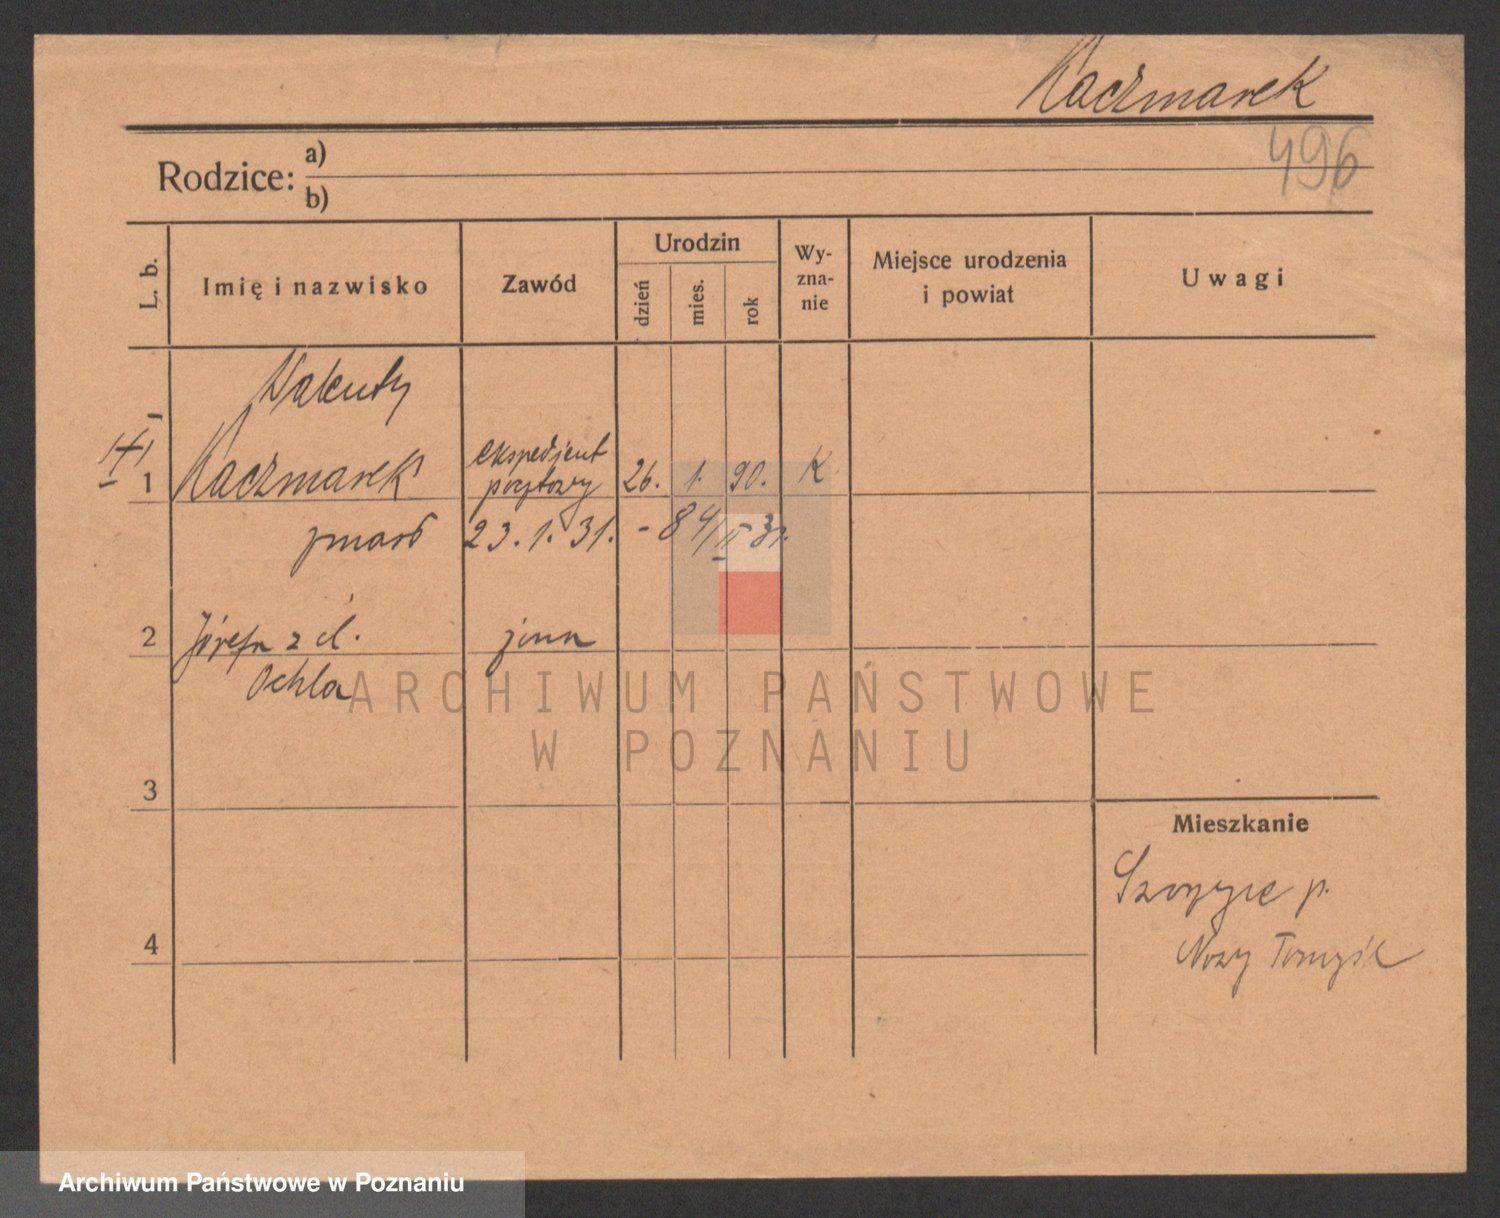 Kaczmarek
496
Rodzice: a)
b)
L. b.
Imię i nazwisko
Zawód
Urodzin
dzień
mies.
rok
Wy-
zna-
nie
Miejsce urodzenia
i powiat
Uwagi
Walenty
1 Kaczmarek
ekspedjent
pocztowy
26. 1. 90. K
zmarł 23. 1. 31. - 84/II 31.
2 Józefa z d. żona
Ochla
3
Mieszkanie
p.
Nowy Tomyśl
4
ARCHIWUM PAŃSTWOWE
W POZNANIU
Archiwum Państwowe w Poznaniu